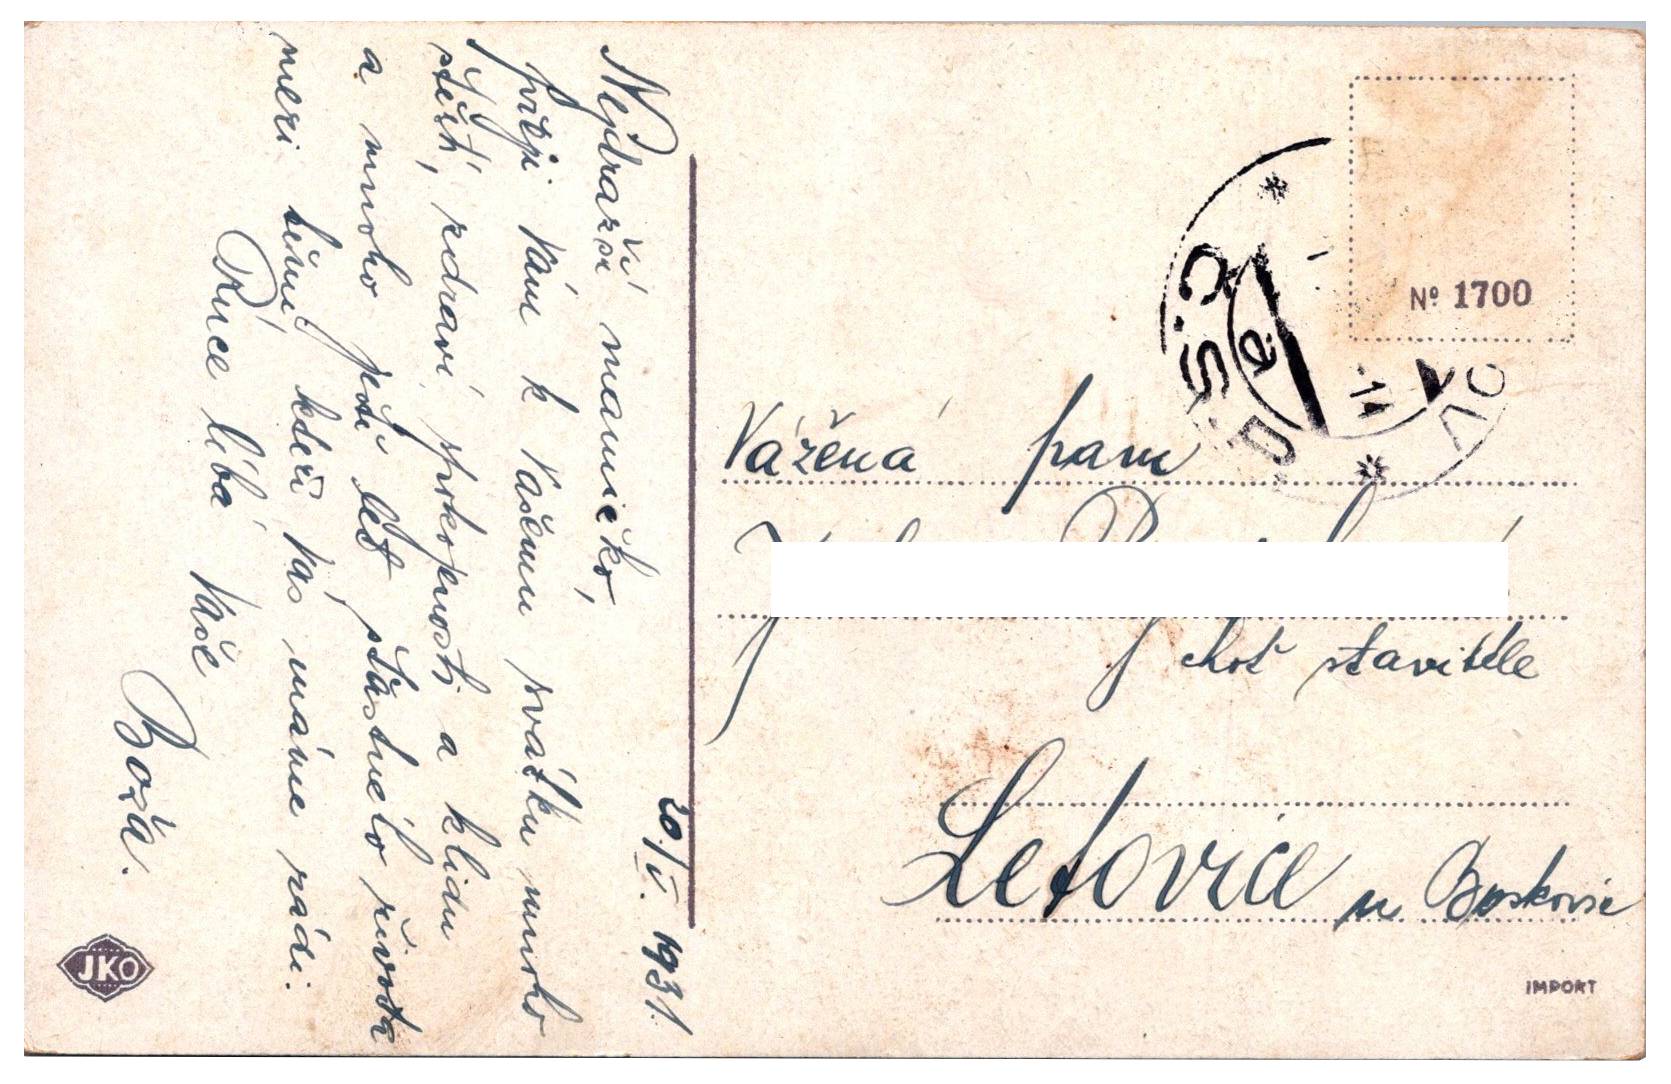 20./V. 1931.
Nejdražší maminko,
přeji Vám k Vašemu svátku mnoho
štěstí, zdraví, spokojenosti a klidu
a mnoho ještě let šťastného života
mezi těmi, kteří Vás máme rádi.
Ruce líbá Vaše
Boža.
JKO
Nº 1700
ČS
Vážená paní
choť stavitele
Letovice
u Boskovic
IMPORT